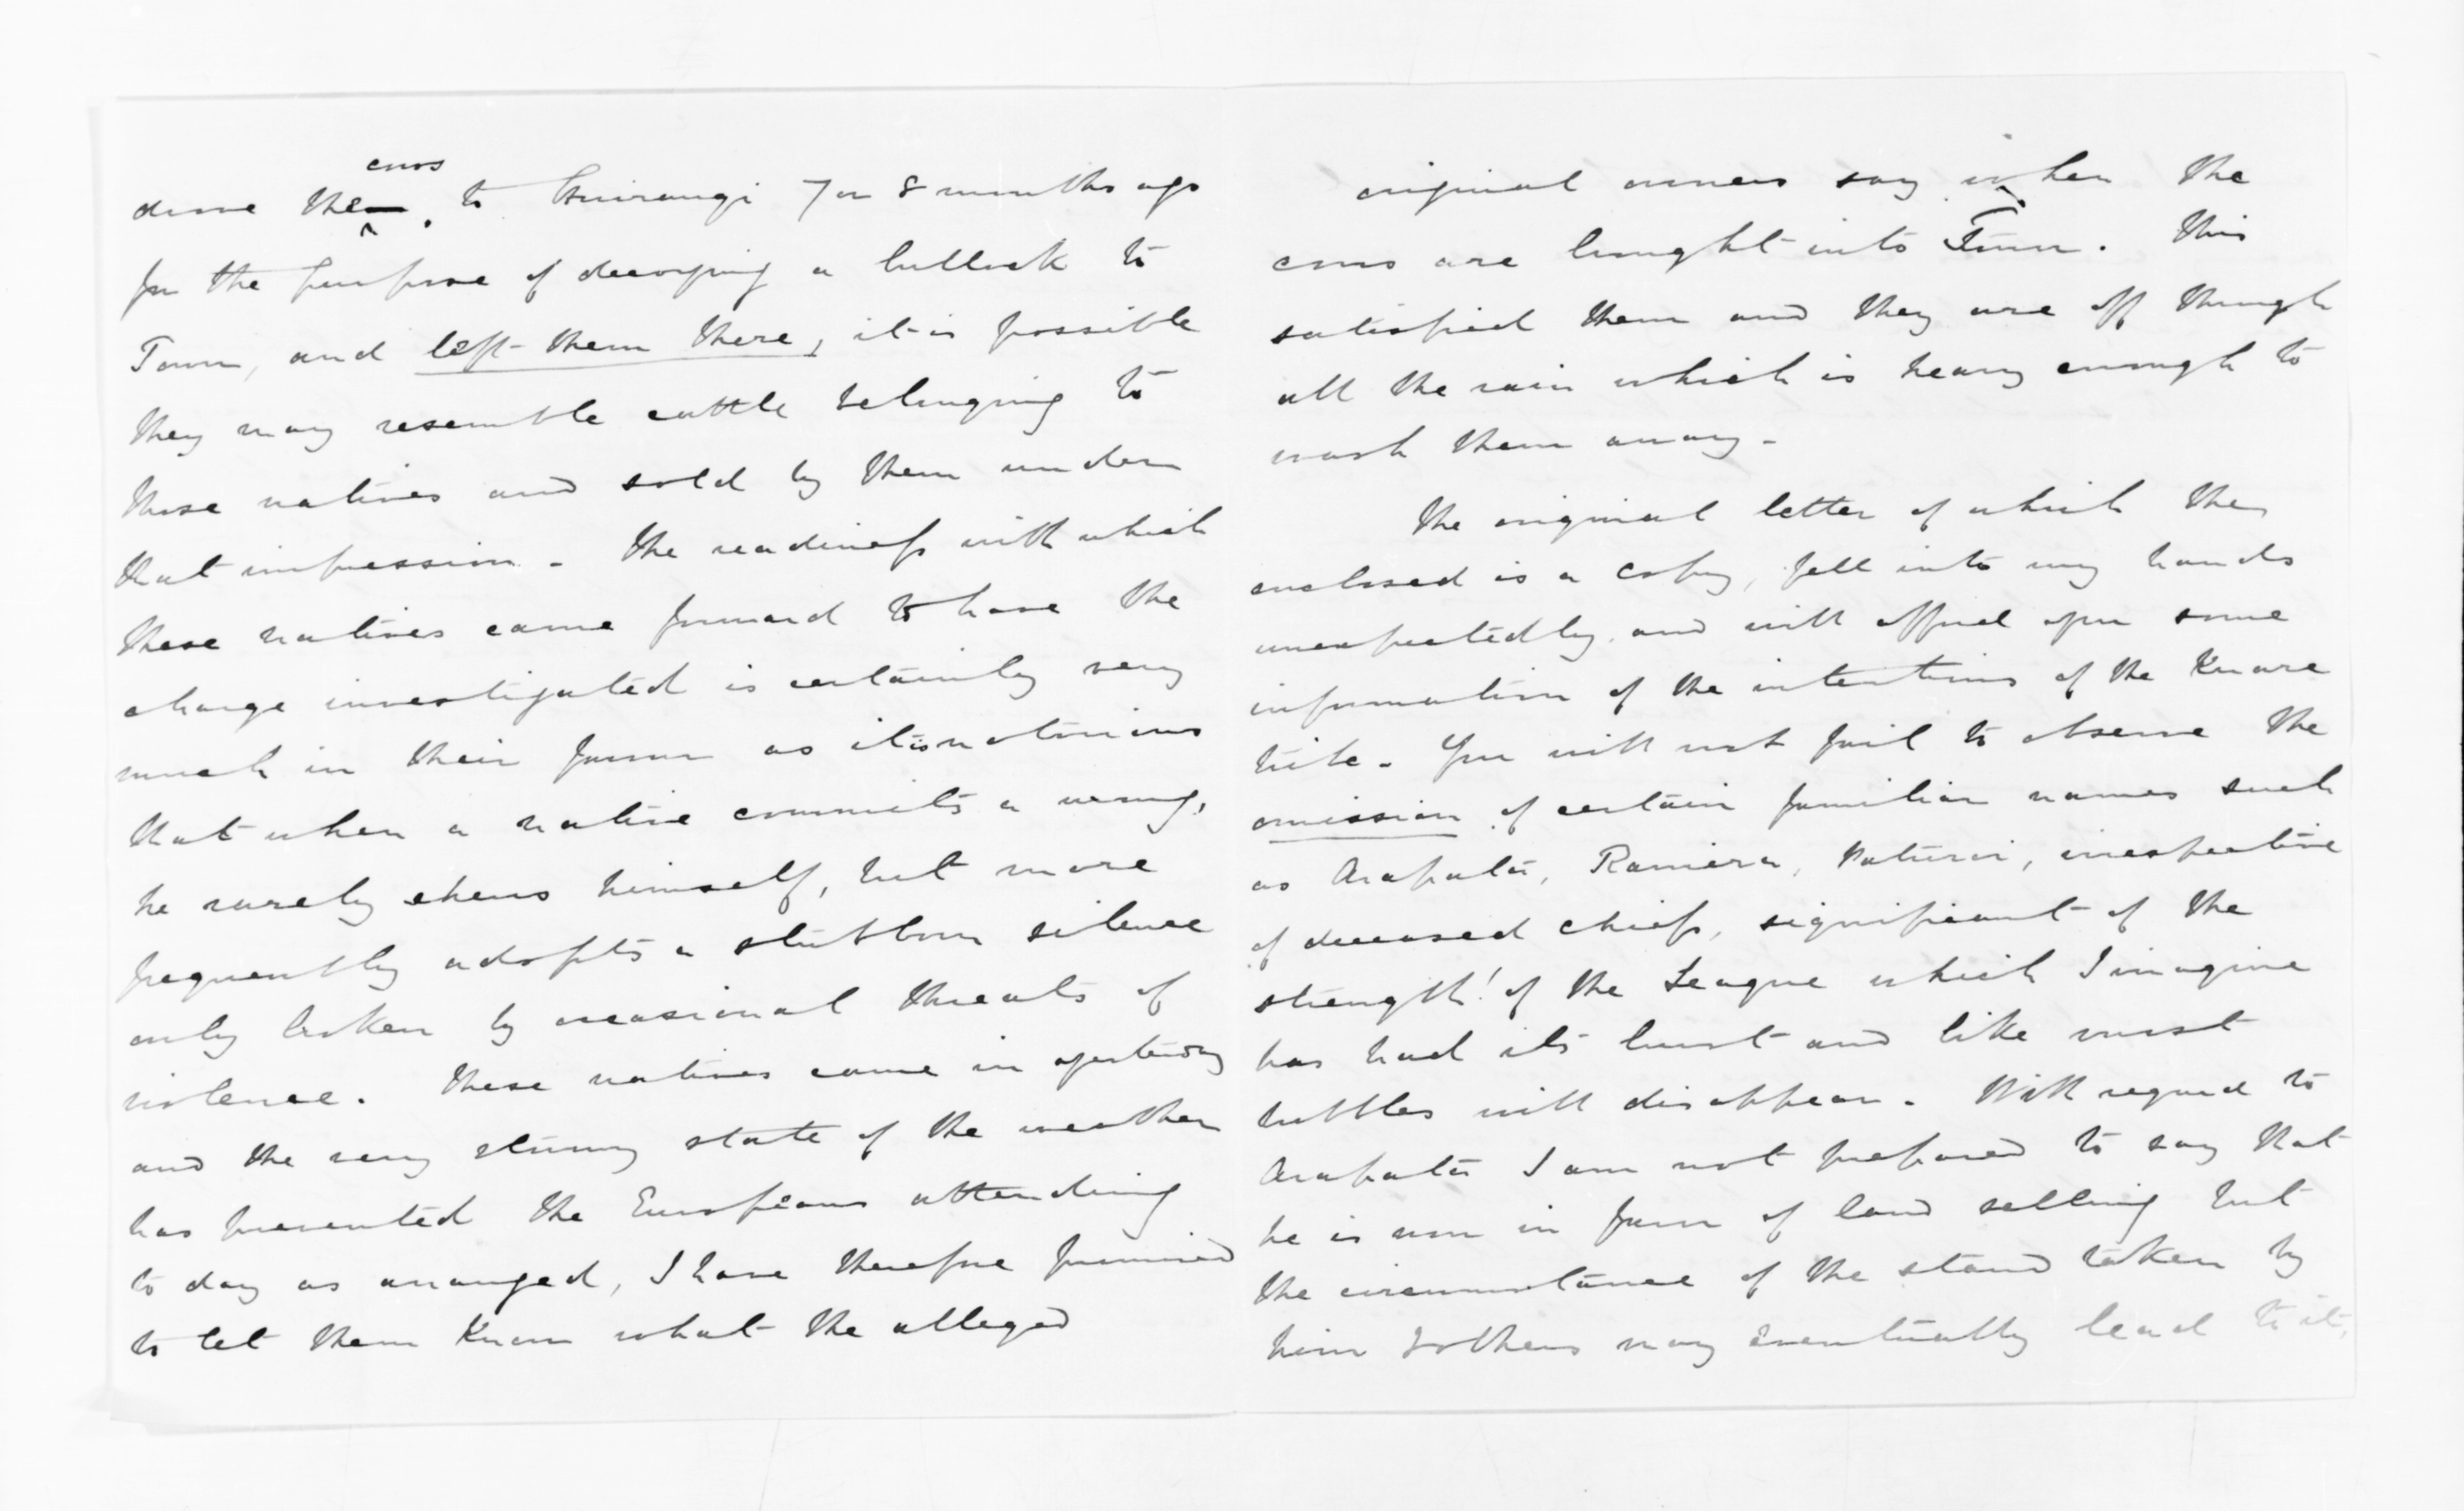 drove the cows to Huirangi 7 or 8 months ago
for the purpose of decoying a bullock to
Town, and left them there, it is possible
they may resemble cattle belonging to
those natives and sold by them under
that impression. - The readiness with which
these natives came forward to have the
charge investigated is certainly very
much in their favor as it is notorious
that when a native commits a wrong,
he rarely shews himself, but more
frequently adopts a stubborn silence
only broken by occasional threats of
violence. These natives came in yesterday
and the very stormy state of the weather
has prevented the Europeans attending
to day as arranged, I have therefore promised
to let them know what the alleged
original owners say when the
cows are brought into Town. This
satisfied them and they are off through
all the rain which is heavy enough to
wash them away -
The original letter of which the
enclosed is a copy, fell into my hands
unexpectedly and will afford you some
information of the intentions of the
tribe - You will not fail to observe the
omission of certain familiar names such
as Arapata, Ramera, irrespective
of deceased chiefs, significant of the
strength! of the League which I imagine
has had its burst and like most
bubbles will disappear. With regard to
Arapata I am not prepared to say that
he is now in favor of land selling but
the circumstance of the stand taken by
him & others may eventually lead to it,